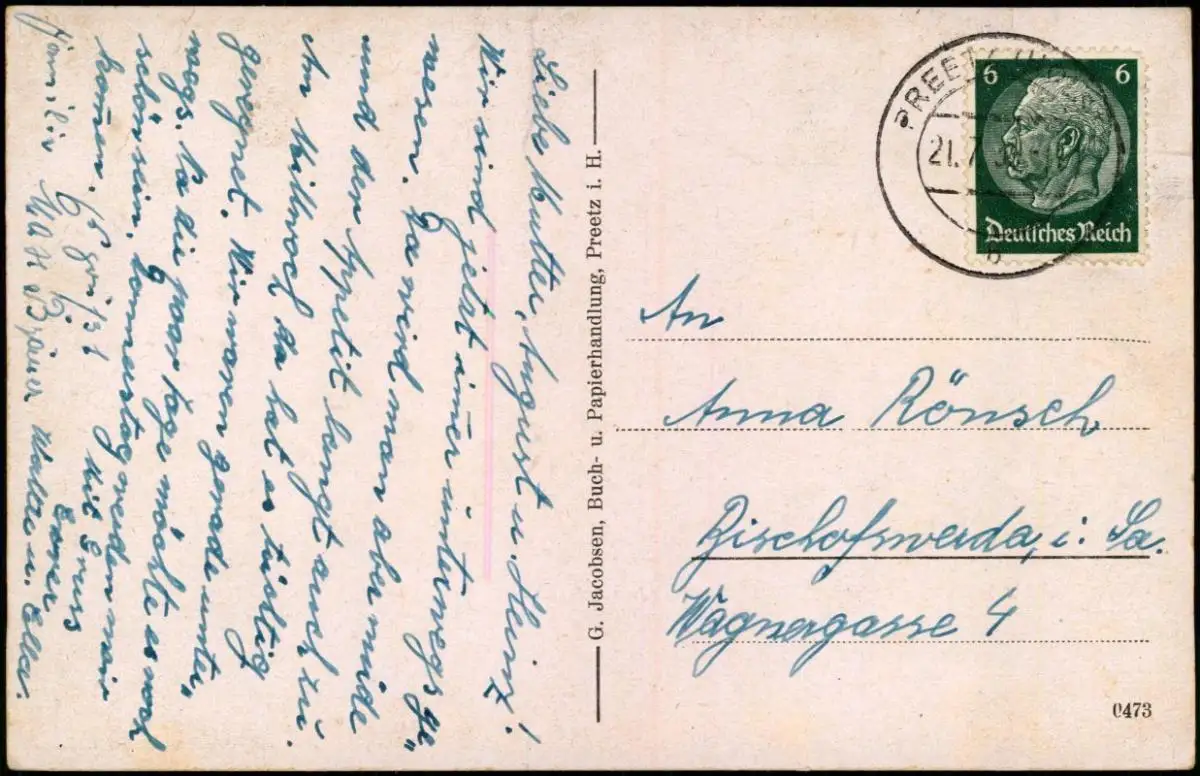 Liebe Mutter, August u. Heinz!
Wir sind jetzt im̄er unterwegs ge„
wesen. Da wird man aber müde
und der Apetit langt auch zu.
Am Mittwoch da hat es tüchtig
geregnet. Wir waren gerade unter„
wegs. Na die paar Tage möchte es noch
schön sein, Donnerstag werden wir
kom̄en. Mit Gruss
Eure
Walter u. Ella.
Es grüßt
Familie
G. Jacobsen, Buch- u. Papierhandlung, Preetz i. H.
PREETZ
21.7.3
b
6 6
Deutsches Reich
An
Anna Rönsch
Bischofswerda, i. Sa.
Wagnergasse 4
0473